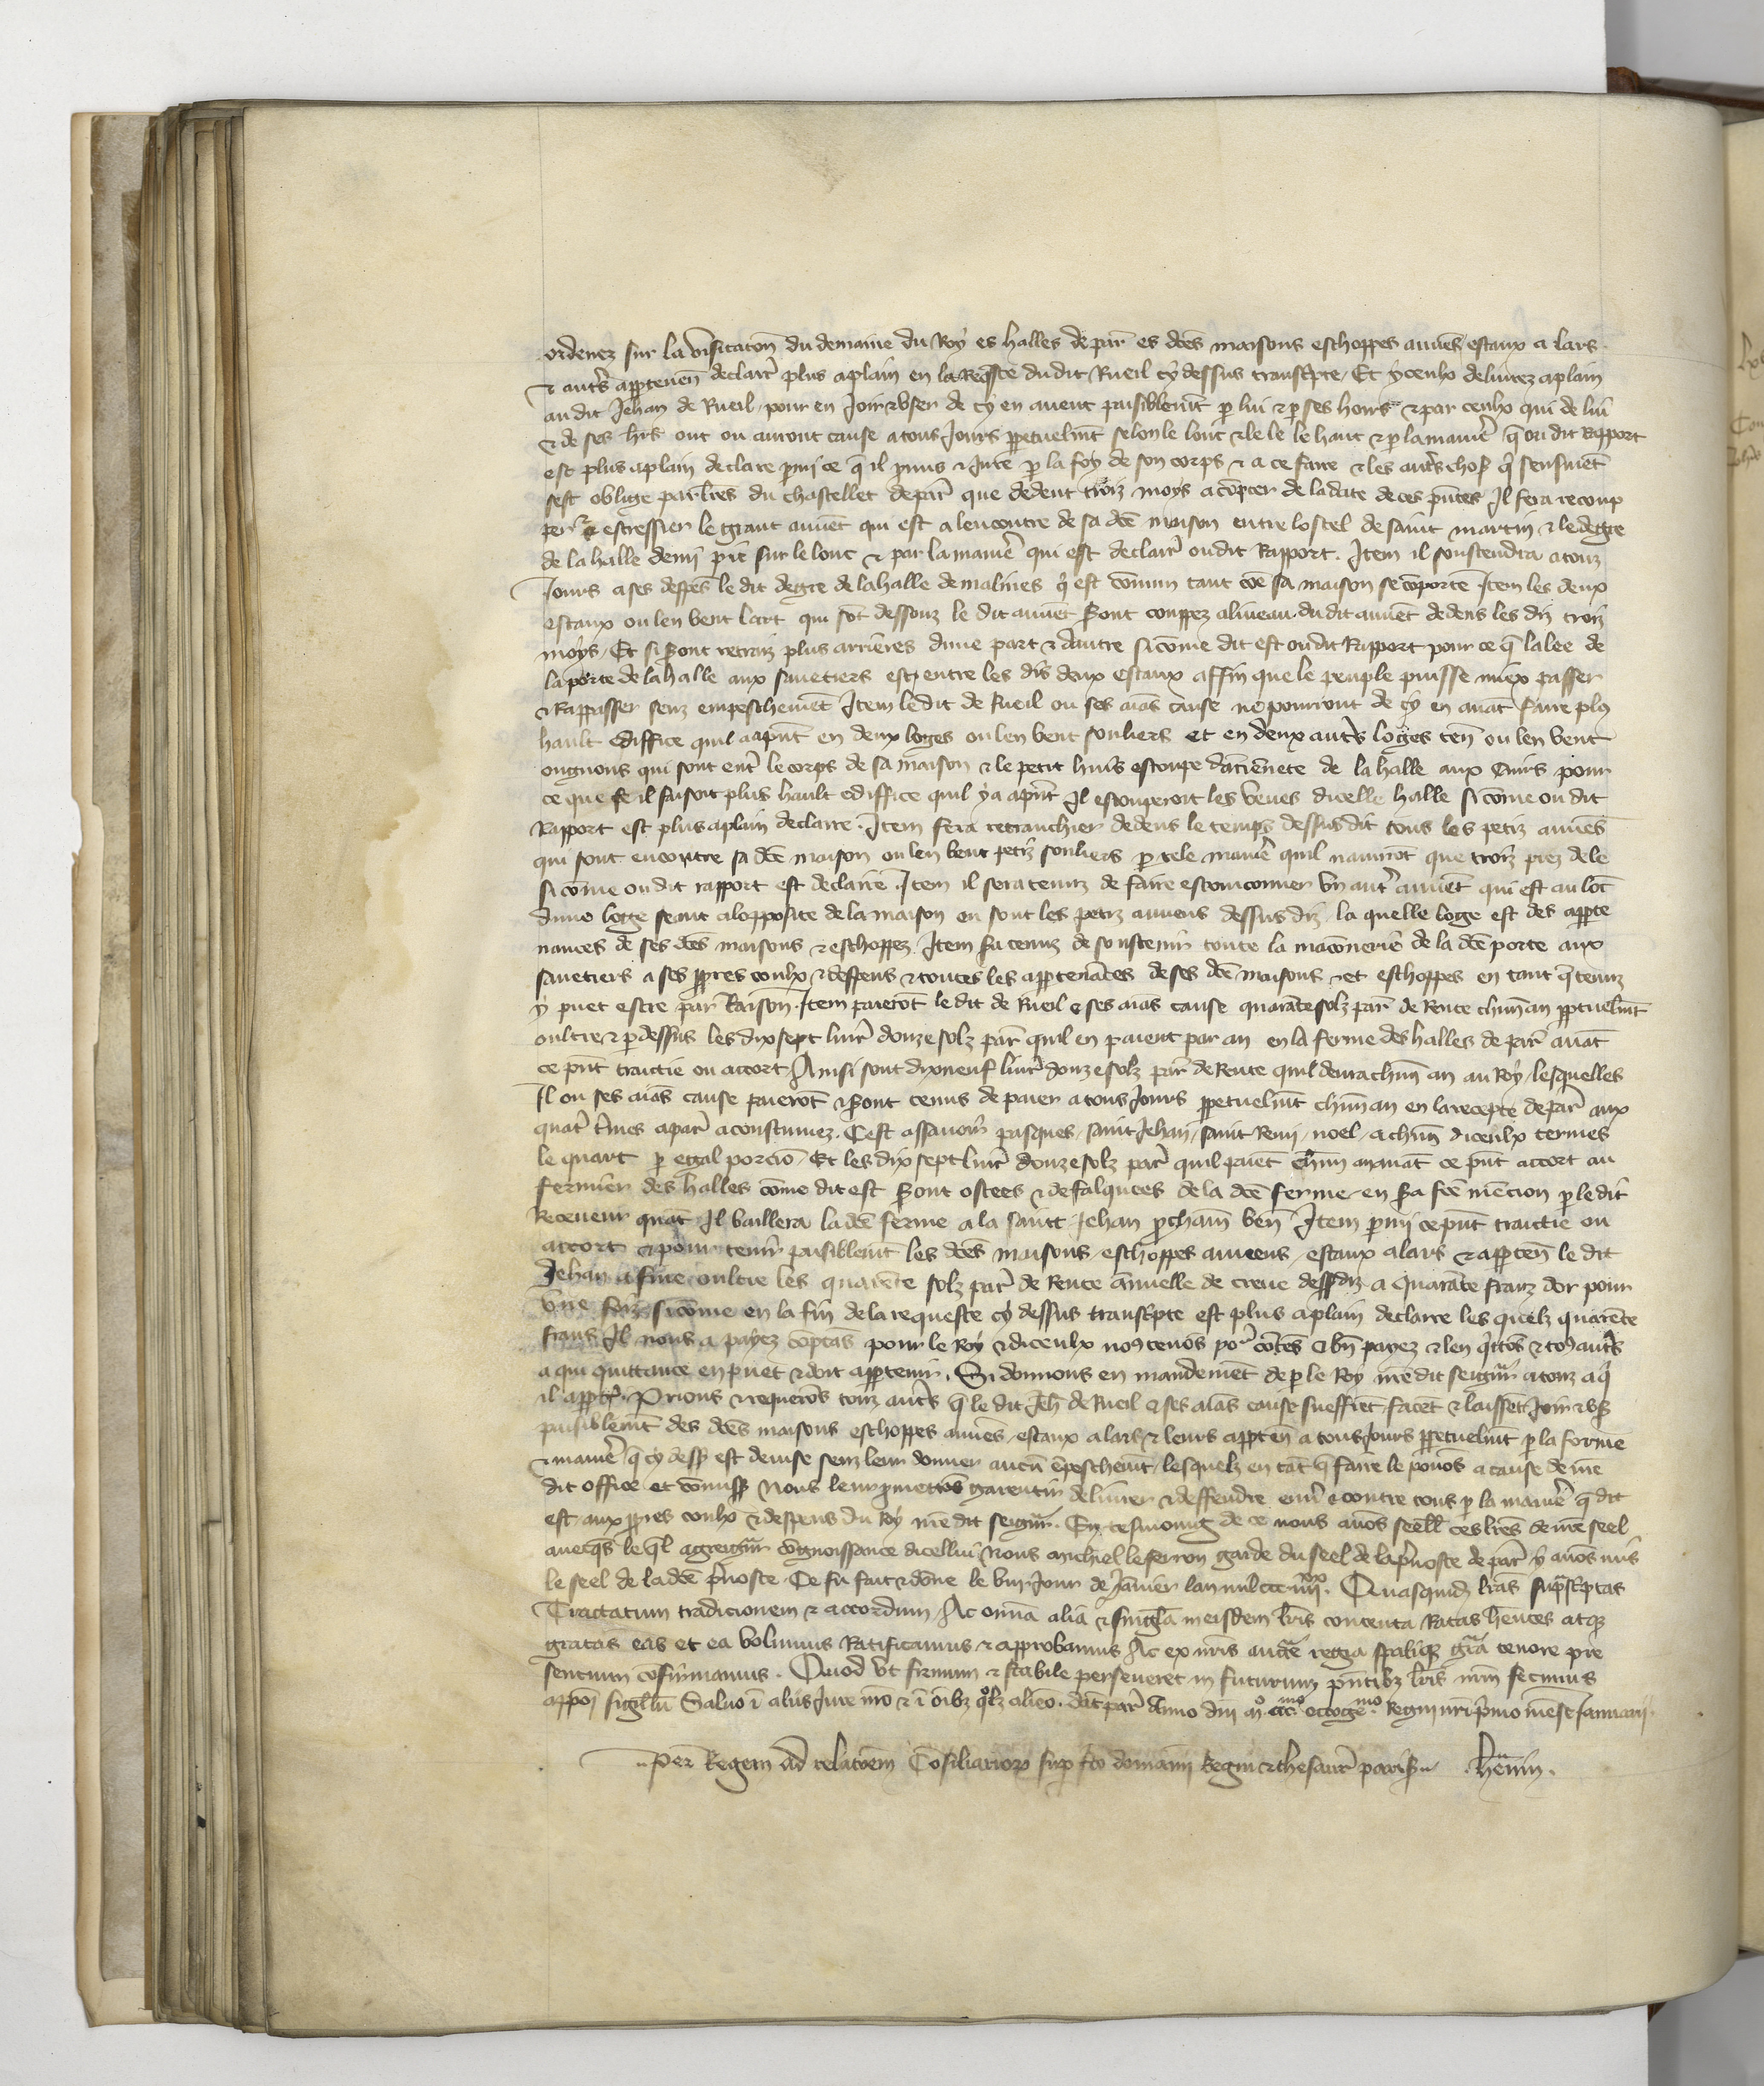 ordenez sur la visitacōn du demaine du Roy es halles de par̄ es dc̄es maisons eschoppes auuēs estaux a lars
& aut̄s appten̄ declair̄ plus aplain en la Req̄ste du dit Rueil cy dessus transc̄pte / Et yceulx deliurez aplain
au dit Jehan de Rueil / pour en Joir & vser de cy en auent paisiblem̄t p lui & p ses hoirs & par ceulx qui de lui
& de ses hrs̄ ont ou auront cause a tous Jours ppetuelm̄t selon le lonc & le le le haut & p la manier̄ q̄ ou dit Rapport
est plus aplain declare pmi ce q̄ il pmis & Jure p la foy de son corps & a ce faire & les aut̄s chos̄ q̄ sensuiēt
sest oblige par lr̄es du chastellet de par̄ que dedent troiz moys a cōpter de la date de ces pn̄tes Il fera recoup
per & estressier le grant auuēt qui est a lencontre de sa dc̄e maison entre lostel de saint martin & le degre
de la halle demi pie sur le lonc & par la manier̄ qui est declair̄ ou dit Rapport. Item il soustendra a touz
Jours a ses despēs le dit degre de la halle de malines q̄ est cōmun tant cōe sa maison se cōporte Item les deux
estaux ou len vent lart qui sōt dessouz le dit auuēt s̄ont couppez a liueau du dit auuēt dedens les diz troiz
moys / Et si s̄ont retraiz plus arrieres dune part & dautre si cōme dit est ou dit Rapport pour ce q̄ lalee de
la porte de la halle aux sauetiers est entre les dis deux estaux affin que le peuple puisse miex passer
& Rappasser senz empeschemēt Item le dit de Rueil ou ses aiās cause ne pourront de cy en auāt faire pl9
hault ediffice quil a apn̄t en deux loges ou len vent souliers et en deux aut̄s loges ten̄ ou len vent
ongnons qui sont ent̄ le corps de sa maison & le petit huis estoupe dāciēnete de la halle aux Cuirs pour
ce que se il faisoit plus hault ediffice quil y a apn̄t Il estouperoit les veues dicelle halle si cōme ou dit
Rapport est plus aplain declaire. Item fera retranchier dedens le temps dessus dit tous les petiz auuēs
qui sont encontre sa dc̄e maison ou len vent petiz souliers p tele manier̄ quil naurōt que troiz piez de le
si cōme ou dit rapport est declaire. Item il sera tenuz de faire vn aut̄ auuēt qui est au lōc
dune loge seant a lopposite de la maison ou sont les petiz auuens dessus diz la quelle loge est des appte
nances de ses dc̄es maisons & eschoppez Item s̄a tenuz de soustenir toute la macōnerie de la dc̄e porte aux
sauetiers a ses ppres coulx & despens & toutes les apptenāces de ses dc̄e maisons & et eschoppes en tant q̄ tenuz
y puet estre par Raison. Item paierōt le dit de Rueil & ses aiās cause quarāte solz par̄ de Rente chūn an pptuelm̄t
oultre & p dessus les dix sept liur̄ douze solz par̄ quil en paient par an en la ferme des halles de par̄ auāt
ce pn̄t traictie ou accort Ainsi sont dix neuf liur̄ douze solz par̄ de Rente quil deura chūn an au Roy / lesquelles
Il ou ses aiās cause paierōt & s̄ont tenus de paier a tous Jours ppetuelm̄t chūn an en la recepte de par̄ aux
quat̄ t̄mes a par̄ acoustumez. Cest assauoir pasques / saint Jehan / saint Remi / noel / a chūn diceulx termes
le quart p egal porciō / Et les dix sept liur̄ douze solz par̄ quil paiēt chūn an auāt ce pn̄t accort au
fermier des halles cōme dit est s̄ont ostees & defalquees de la dc̄e ferme / en s̄a fc̄e mēcion p le dit
Receueur quāt Il baillera la dc̄e ferme a la saint Jehan pchain ven̄ Item pmi ce pn̄t traictie ou
accort & pour tenir paisiblem̄t les dc̄es maisons / eschoppes auuens / estaux a lars & appten̄ le dit
Jehan a fine oultre les quarāte solz par̄ de Rente ānuelle de creue dessdiz a Quarāte franz dor pour
vne foiz si cōme en la fin de la requeste cy dessus transc̄pte est plus aplain declaire les quelz quarēte
frans Il nous a payez cōptās pour le Roy & diceulx no9 tenōs por cōtēs & bn̄ payez & len q̄ttōs & to9 aut̄s
a qui quittance en puet & doit apptenir. Si donnons en mandemēt de p le Roy nr̄e dit seign̄r a touz aq̄
il apptēt. Prions & requerōs touz aut̄s q̄ le dit Jeh̄ de Rueil & ses aiās cause sueffrēt facēt & laissēt Joir & vs̄
paisiblem̄t des dc̄es maisons eschoppes auuēs / estaux a lars & leurs appten̄ a tous Jours ppetuelm̄t p la forme
& manier̄ q̄ cy dess9 est deuise senz leur donner aucū ēpeschem̄t / lesquelz en tāt q̄ faire le pouōs a cause de nr̄e
dit office et cōmiss̄ Nous leur pmetōs garentir deliurer & deffendre enū & contre tous p la manier̄ q̄ dit
est aux ppres coulx & despens du Roy nr̄e dit seign̄r. En tesmoing de ce nous auōs seelle ces lr̄es de nr̄e seel
auecq̄s le q̄l a greign̄r cōgnoissance dicellui Nous michiel le ferron garde du seel de la p̄uoste de par̄ y auōs mis
le seel de la dc̄e p̄uoste. Ce fu fait & dōne le viij Jour de Jāuier lan mil ccc iiijxx. Quasquid̄ lr̄as sup̄sc̄ptas
Tractatum tradicionem & accordum / Ac om̄ia alia & sinḡla in eisdem lr̄is contenta Ratas hēntes atq3
gratas eas et ea volumus Ratificamus & approbamus Ac ex nr̄is auct̄e regia sp̄aliq3 gr̄a tenore pre
sencium cōfirmamus. Quod vt firmum & stabile perseueret in futurum pn̄tib3 lr̄is nr̄m fecimus
appōi sigillū Saluo ī aliis Jure nr̄o & ī ōib3 q̊lz alieno. dat̄ par̄ Anno dn̄i mº cccmo octogēmo. Regni nr̄i p̄mo mēse Januarij.
Per Regem ad relacōem Cōsiliarior̄ sup fc̄o domanii Regni & thesaur̄ paris̄ Hēnin.